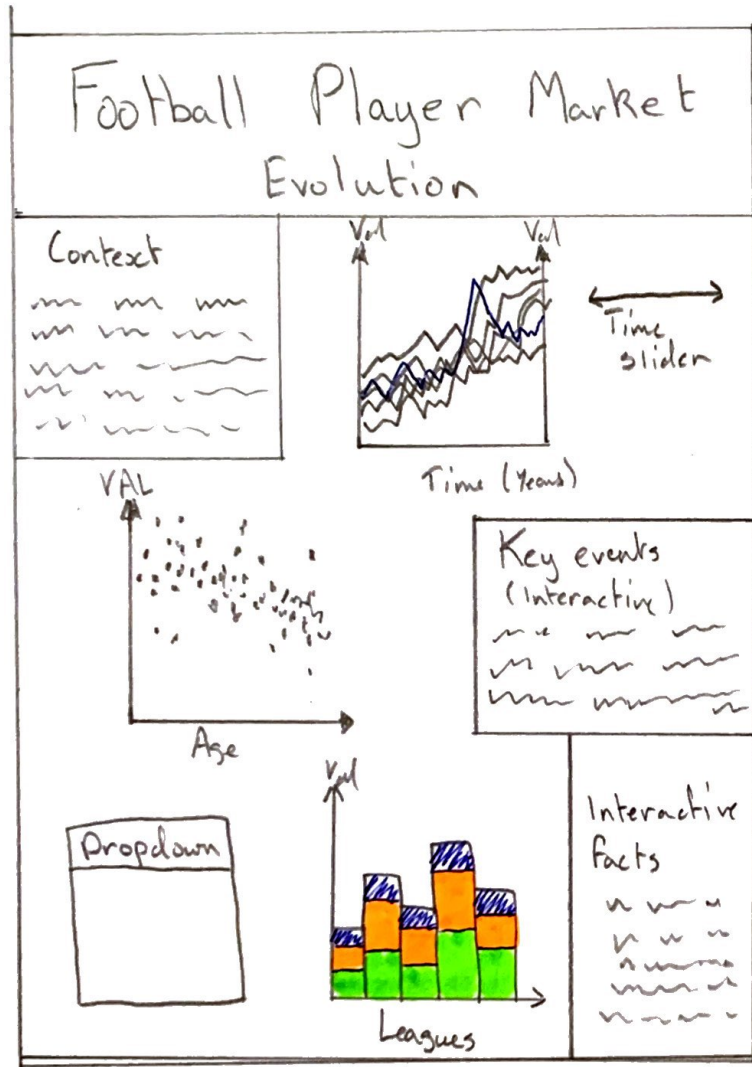 Football Player Market
Evolution
Context
Val
Val
Time
slider
Time (Years)
VAL
Age
Key events
(Interactive)
Dropdown
Val
Leagues
Interactive
facts